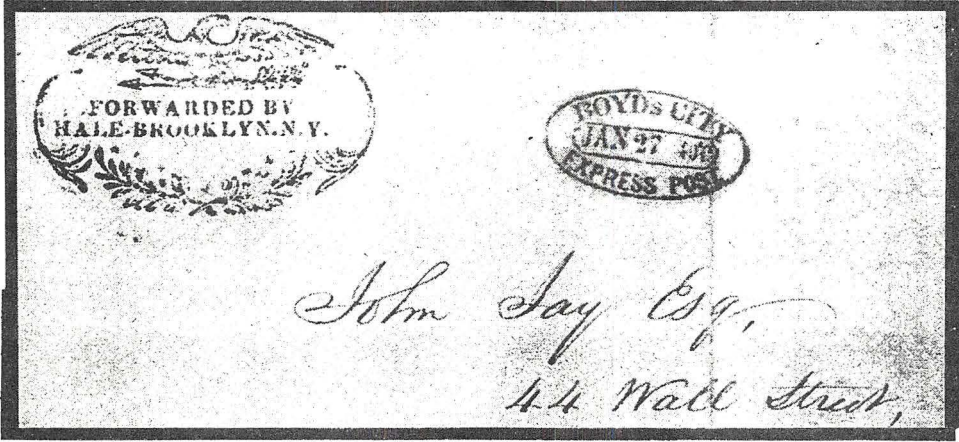 FORWARDED BY
HALE-BROOKLYN.N.Y.
BOYDs CITY
JAN 27
EXPRESS POST
John Jay Esq,
44 Wall Street,